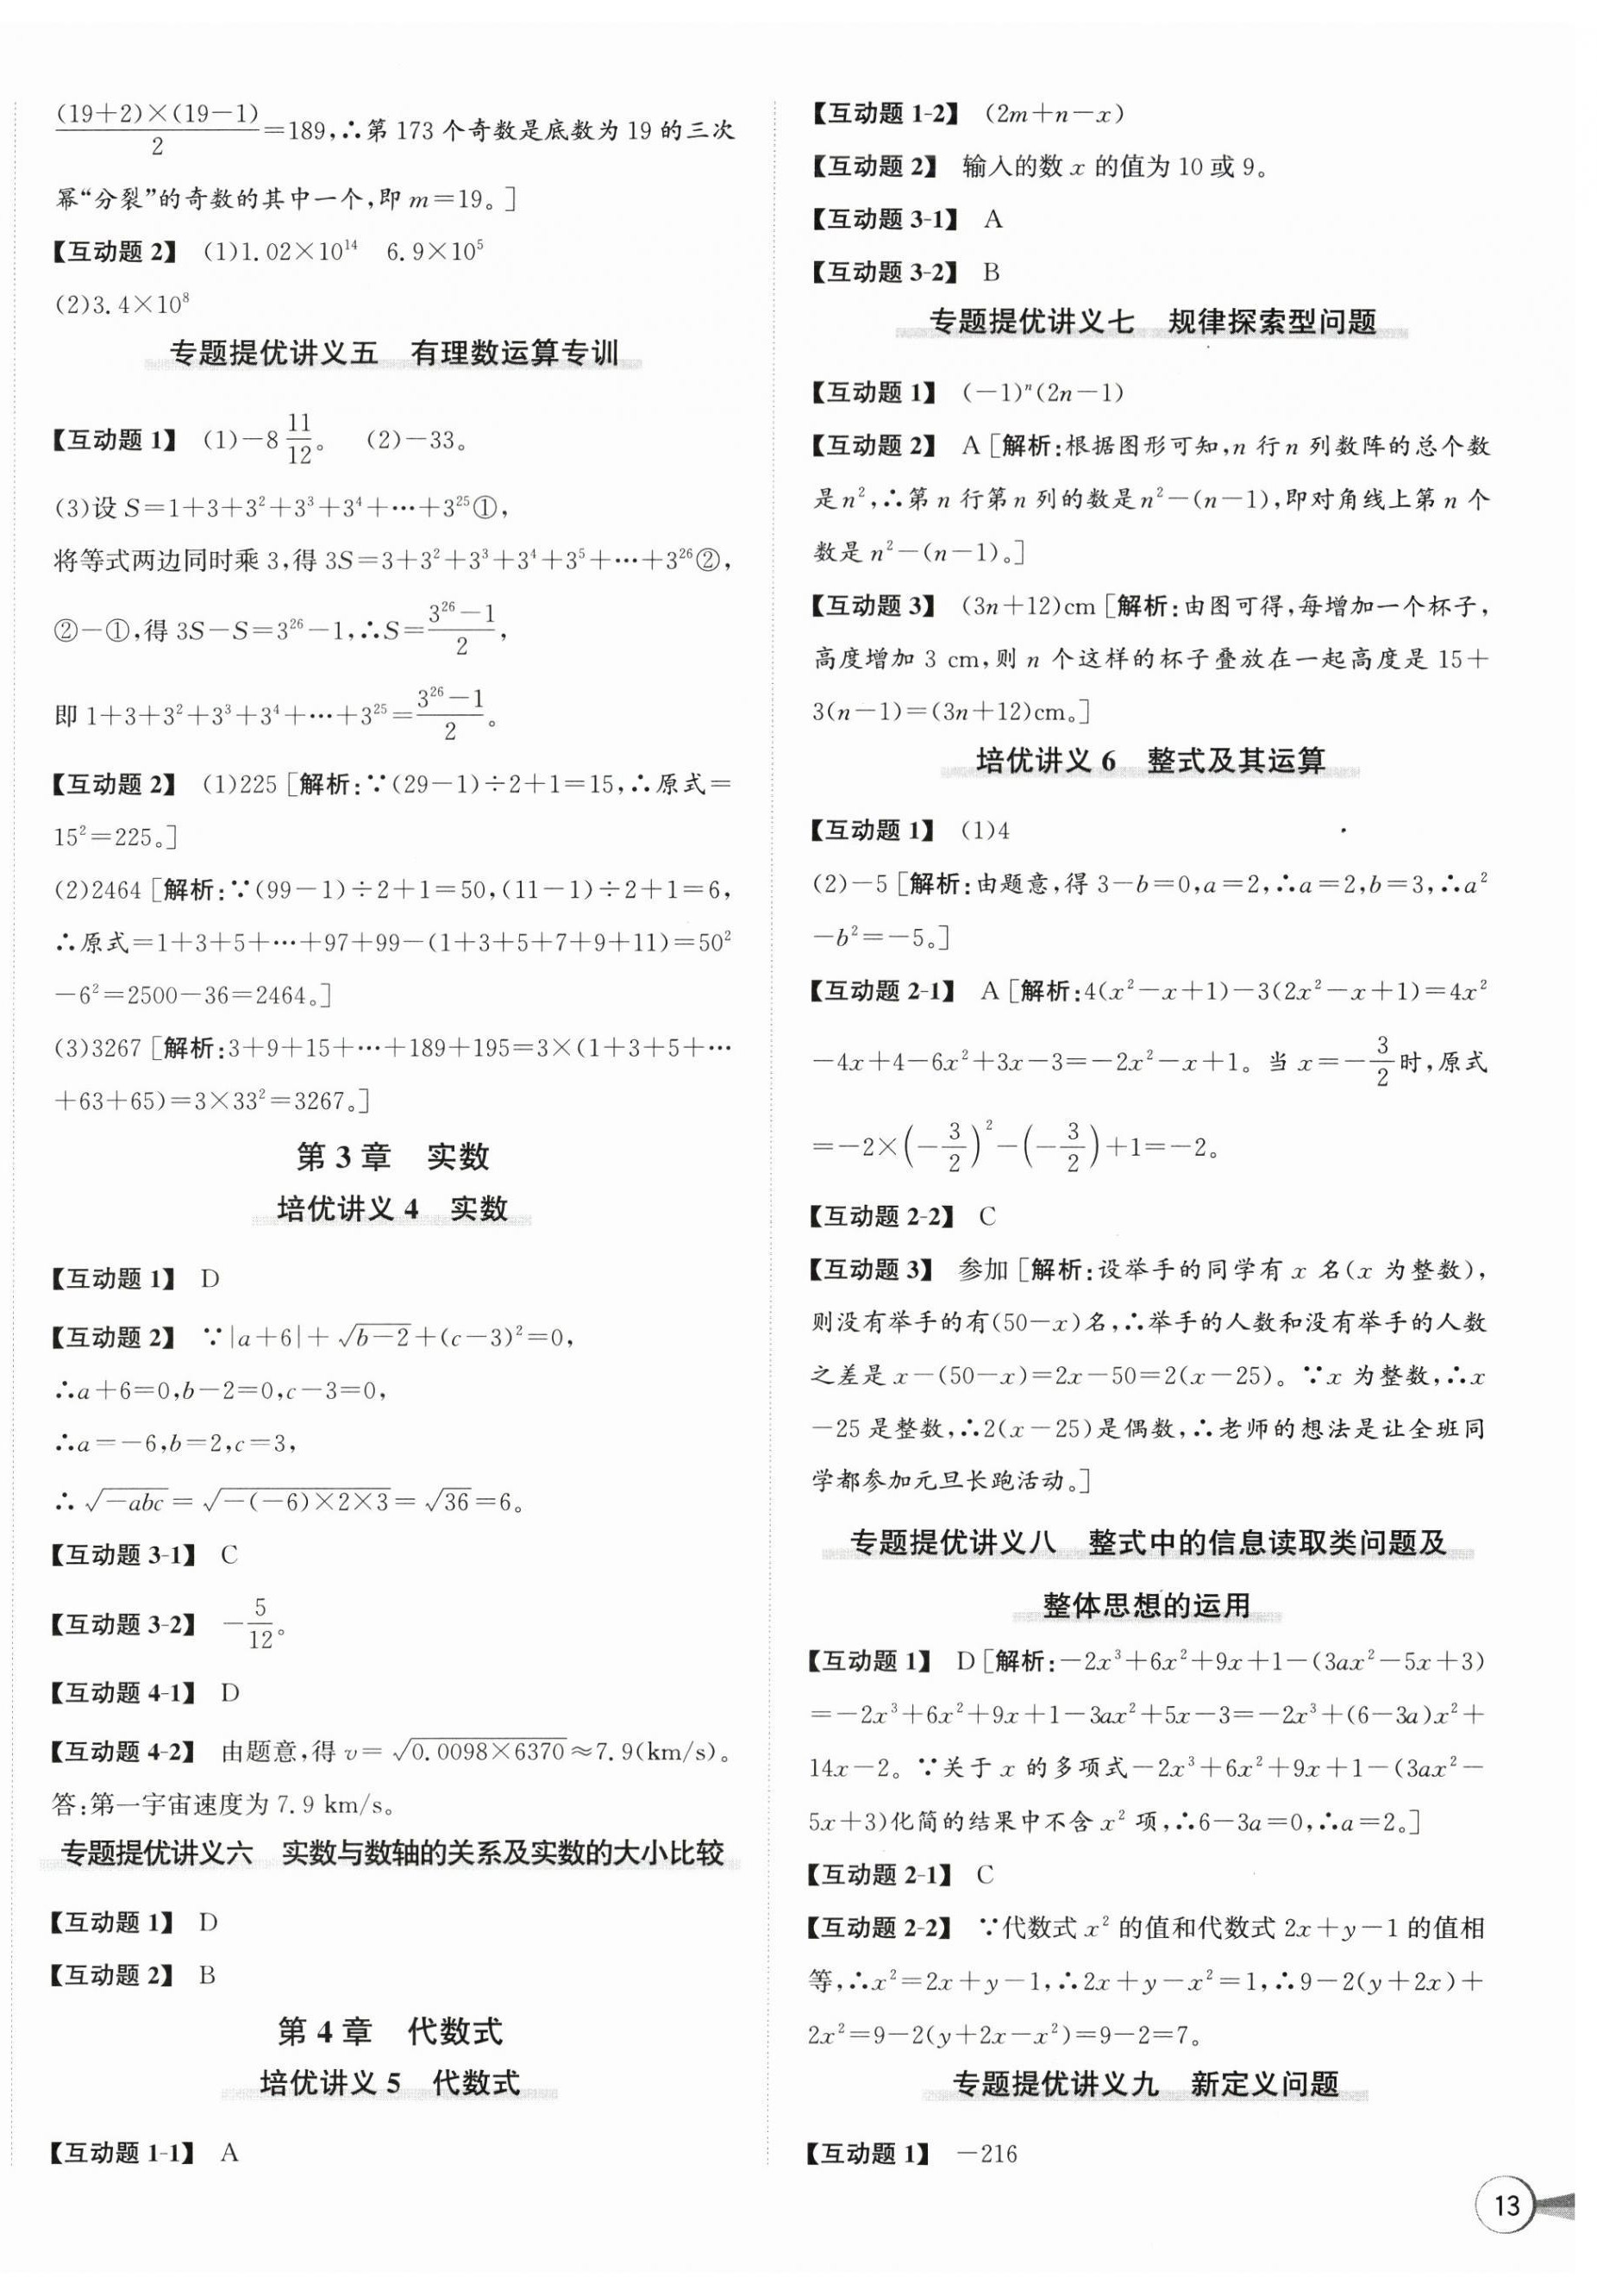 (19+2)×(19-1)/2=189,∴第 173 个奇数是底数为 19 的三次
幂“分裂”的奇数的其中一个,即 m=19。]
【互动题 2】 (1)1.02×10¹⁴ 6.9×10⁵
(2)3.4×10⁸
专题提优讲义五 有理数运算专训
【互动题 1】 (1)-8 11/12。 (2)-33。
(3)设 S=1+3+3²+3³+3⁴+…+3²⁵①,
将等式两边同时乘 3,得 3S=3+3²+3³+3⁴+3⁵+…+3²⁶②,
②-①,得 3S-S=3²⁶-1,∴S=(3²⁶-1)/2,
即 1+3+3²+3³+3⁴+…+3²⁵=(3²⁶-1)/2。
【互动题 2】 (1)225 [解析:∵(29-1)÷2+1=15,∴原式=
15²=225。]
(2)2464 [解析:∵(99-1)÷2+1=50,(11-1)÷2+1=6,
∴原式=1+3+5+…+97+99-(1+3+5+7+9+11)=50²
-6²=2500-36=2464。]
(3)3267 [解析:3+9+15+…+189+195=3×(1+3+5+…
+63+65)=3×33²=3267。]
第 3 章 实数
培优讲义 4 实数
【互动题 1】 D
【互动题 2】 ∵|a+6|+√(b-2)+(c-3)²=0,
∴a+6=0,b-2=0,c-3=0,
∴a=-6,b=2,c=3,
∴√(-abc)=√(-(-6)×2×3)=√36=6。
【互动题 3-1】 C
【互动题 3-2】 -5/12。
【互动题 4-1】 D
【互动题 4-2】 由题意,得 v=√(0.0098×6370)≈7.9(km/s)。
答:第一宇宙速度为 7.9 km/s。
专题提优讲义六 实数与数轴的关系及实数的大小比较
【互动题 1】 D
【互动题 2】 B
第 4 章 代数式
培优讲义 5 代数式
【互动题 1-1】 A
【互动题 1-2】 (2m+n-x)
【互动题 2】 输入的数 x 的值为 10 或 9。
【互动题 3-1】 A
【互动题 3-2】 B
专题提优讲义七 规律探索型问题
【互动题 1】 (-1)ⁿ(2n-1)
【互动题 2】 A [解析:根据图形可知,n 行 n 列数阵的总个数
是 n²,∴第 n 行第 n 列的数是 n²-(n-1),即对角线上第 n 个
数是 n²-(n-1)。]
【互动题 3】 (3n+12)cm [解析:由图可得,每增加一个杯子,
高度增加 3 cm,则 n 个这样的杯子叠放在一起高度是 15+
3(n-1)=(3n+12)cm。]
培优讲义 6 整式及其运算
【互动题 1】 (1)4
(2)-5 [解析:由题意,得 3-b=0,a=2,∴a=2,b=3,∴a²
-b²=-5。]
【互动题 2-1】 A [解析:4(x²-x+1)-3(2x²-x+1)=4x²
-4x+4-6x²+3x-3=-2x²-x+1。当 x=-3/2时,原式
=-2×(-3/2)²-(-3/2)+1=-2。
【互动题 2-2】 C
【互动题 3】 参加 [解析:设举手的同学有 x 名(x 为整数),
则没有举手的有(50-x)名,∴举手的人数和没有举手的人数
之差是 x-(50-x)=2x-50=2(x-25)。∵x 为整数,∴x
-25 是整数,∴2(x-25)是偶数,∴老师的想法是让全班同
学都参加元旦长跑活动。]
专题提优讲义八 整式中的信息读取类问题及
整体思想的运用
【互动题 1】 D [解析:-2x³+6x²+9x+1-(3ax²-5x+3)
=-2x³+6x²+9x+1-3ax²+5x-3=-2x³+(6-3a)x²+
14x-2。∵关于 x 的多项式-2x³+6x²+9x+1-(3ax²-
5x+3)化简的结果中不含 x² 项,∴6-3a=0,∴a=2。]
【互动题 2-1】 C
【互动题 2-2】 ∵代数式 x² 的值和代数式 2x+y-1 的值相
等,∴x²=2x+y-1,∴2x+y-x²=1,∴9-2(y+2x)+
2x²=9-2(y+2x-x²)=9-2=7。
专题提优讲义九 新定义问题
【互动题 1】 -216
13